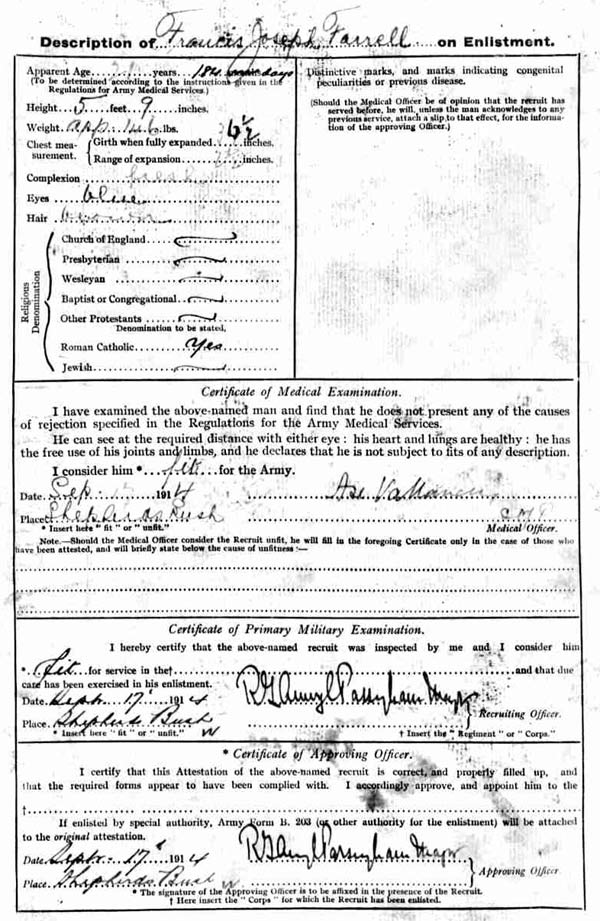 Description of Francis Joseph Farrell on Enlistment.
Apparent Age years. 184 days
(To be determined according to the instructions given in the
Regulations for Army Medical Services.)
Height 5 feet 9 inches.
Weight app 146 lbs.
Chest mea-
surement.
Girth when fully expanded inches.
Range of expansion inches.
Complexion fresh
Eyes blue
Hair
Religious
Denomination
Church of England
Presbyterian
Wesleyan
Baptist or Congregational
Other Protestants
Denomination to be stated.
Roman Catholic Yes
Jewish
Distinctive marks, and marks indicating congenital
peculiarities or previous disease.
(Should the Medical Officer be of opinion that the recruit has
served before, he will, unless the man acknowledges to any
previous service, attach a slip to that effect, for the informa-
tion of the approving Officer.)
Certificate of Medical Examination.
I have examined the above-named man and find that he does not present any of the causes
of rejection specified in the Regulations for the Army Medical Services.
He can see at the required distance with either eye : his heart and lungs are healthy : he has
the free use of his joints and limbs, and he declares that he is not subject to fits of any description.
I consider him * fit for the Army.
Date Sep 1914
Place Shepherds Bush
* Insert here "fit" or "unfit."
Medical Officer.
Note.—Should the Medical Officer consider the Recruit unfit, he will fill in the foregoing Certificate only in the case of those who
have been attested, and will briefly state below the cause of unfitness :—
Certificate of Primary Military Examination.
I hereby certify that the above-named recruit was inspected by me and I consider him
* Fit for service in the† and that due
care has been exercised in his enlistment.
Date Sept. 17 1914
Place Shepherds Bush W
Major
Recruiting Officer.
* Insert here "fit" or "unfit."
† Insert the "Regiment" or "Corps."
* Certificate of Approving Officer.
I certify that this Attestation of the above-named recruit is correct, and properly filled up, and
that the required forms appear to have been complied with. I accordingly approve, and appoint him to the
†
If enlisted by special authority, Army Form B. 203 (or other authority for the enlistment) will be attached
to the original attestation.
Date Sept. 17 1914
Place Shepherds Bush W
Major
Approving Officer.
* The signature of the Approving Officer is to be affixed in the presence of the Recruit.
† Here insert the "Corps" for which the Recruit has been enlisted.